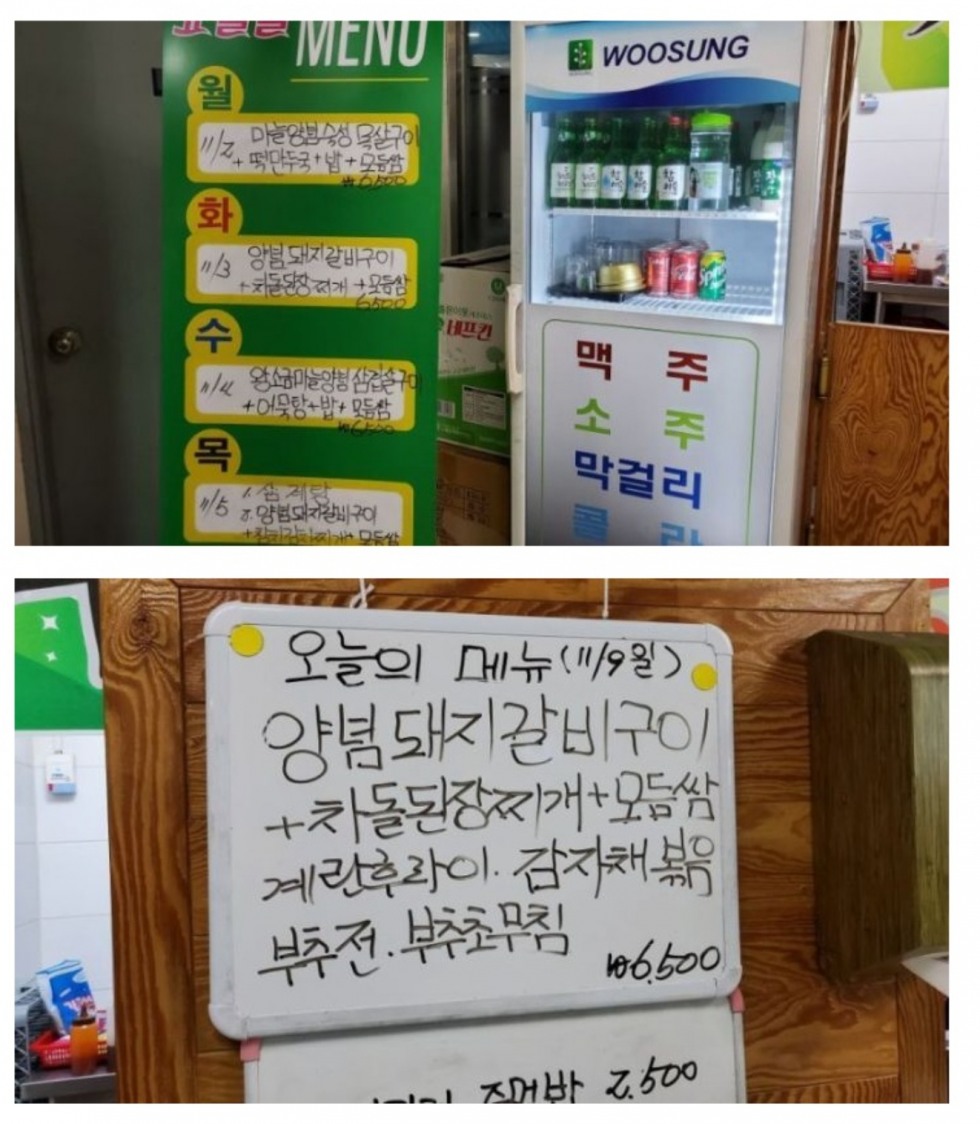 요일별
MENU
월
11/2 마늘양념숙성 목살구이
+ 떡만두국+밥+모듬쌈
₩6,500
화
11/3 양념돼지갈비구이
+차돌된장찌개+모듬쌈
6,500
수
11/4 왕소금마늘양념 삼겹살구이
+어묵탕+밥+모듬쌈
₩6,500
목
11/5 1. 삼계탕
2. 양념돼지갈비구이
+참치김치찌개+모듬쌈
비프킨
WOOSUNG
WOOSUNG
Sprite
맥주
소주
막걸리
콜라
오늘의 메뉴(11/9월)
양념돼지갈비구이
+차돌된장찌개+모듬쌈
계란후라이. 감자채볶음
부추전. 부추초무침
₩6,500
주먹밥 2,500